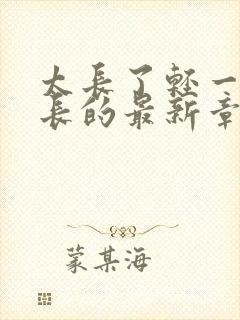 太長了輕一
長的最新章
蒙某海